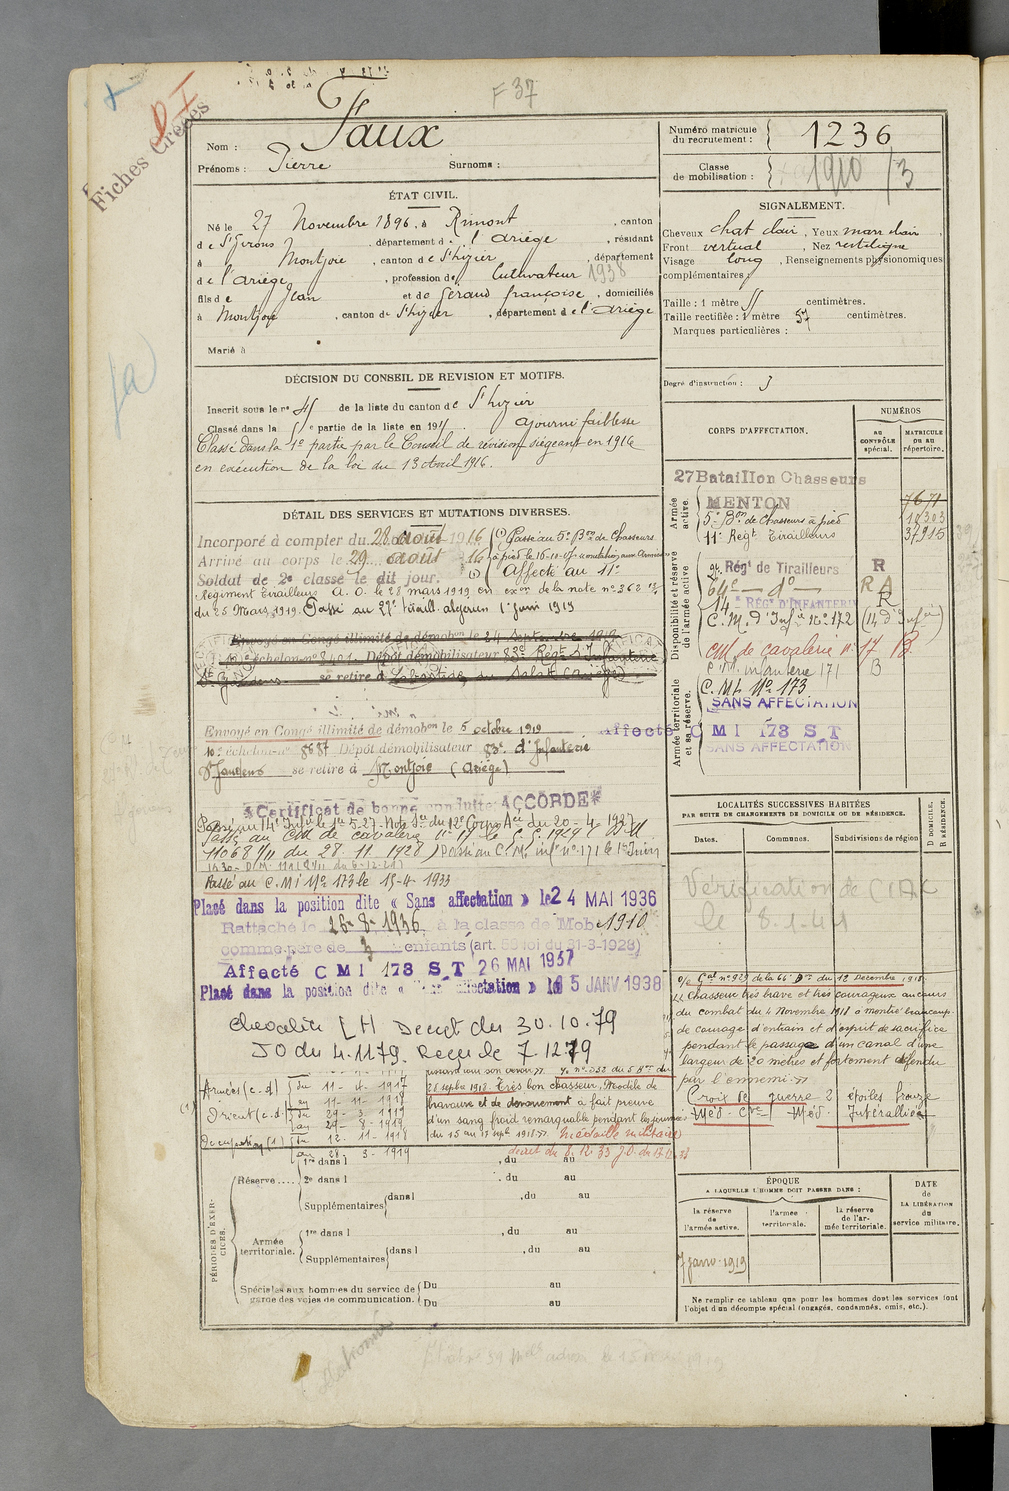 F 37
Fiches Créées
Nom : Faux
Prénoms : Pierre Surnoms :
Numéro matricule du recrutement : 1236
Classe de mobilisation : 1910 /3
ÉTAT CIVIL.
Né le 27 Novembre 1896, à Rimont, canton
de St Girons, département de l'Ariège, résidant
à Montjoie, canton de St Lizier, département
de l'Ariège, profession de Cultivateur 1938
fils de Jean et de Géraud françoise, domiciliés
à Montjoie, canton de St Lizier, département de l'Ariège
Marié à
SIGNALEMENT.
Cheveux chat clair, Yeux marr clair,
Front vertical, Nez rectiligne
Visage long, Renseignements physionomiques
complémentaires :
Taille : 1 mètre 55 centimètres.
Taille rectifiée : 1 mètre 57 centimètres.
Marques particulières :
Degré d'instruction : 3
DÉCISION DU CONSEIL DE REVISION ET MOTIFS.
Inscrit sous le n° de la liste du canton de St Lizier
Classé dans la 5e partie de la liste en 191 . Ajourné faiblesse
Classé dans la 1e partie par le Conseil de révision siégeant en 1916
en exécution de la loi du 13 Avril 1916.
DÉTAIL DES SERVICES ET MUTATIONS DIVERSES.
Incorporé à compter du 28 août 1916 (1) Passé au 5e Bon de Chasseurs
Arrivé au corps le 29 août 16 à pied le 16-10-17
Soldat de 2e classe le dit jour. (1) Affecté au 11e
Régiment Tirailleurs A. O. le 28 mars 1919 en exon de la note n° 362
du 25 Mars 1919. Passé au 27e tiraill. algérien 1er juin 1919
Envoyé en Congé illimité de démobon le 24 septembre 1919
échelon n° 8401 Dépôt démobilisateur 83e Régt d'Infanterie
St Gaudens se retire à
Envoyé en Congé illimité de démobon le 5 octobre 1919
10e échelon n° 8687 Dépôt démobilisateur 83e d'Infanterie
St Gaudens se retire à Montjoie (Ariège)
Certificat de bonne conduite ACCORDÉ
Passé au 14e Infie le 1er-5-27. Note du 12e Corps Aée du 20-4-1927
Passé au CM de cavalerie n° 17 le
11068 1/11 du 28.11.1928) Passé au C.M. inf n° 171 le 1er Juin
Passé au C.M.I N° 173 le 15-4-1933
Placé dans la position dite « Sans affectation » le 24 MAI 1936
Rattaché le 26-8-1936 à la classe de Mob 1910
comme père de 3 enfants (art. 58 loi du 31-3-1928)
Affecté C M I 173 S T 26 MAI 1937
Placé dans la position dite « Sans affectation » le 5 JANV 1938
Chevalier LH Decret du 30.10.79
JO du 4.11.79. Reçu le 7.12.79
Armées (c.d) du 11-4-1917
au 11-11-1918
Orient (c.d) du 29-3-1919
au 29-8-1919
Occupation (1) du 12-11-1918
au 28-3-1919
28 septbre 1918. Très bon chasseur, Modèle de
bravoure et de dévouement a fait preuve
d'un sang froid remarquable pendant les journées
du 15 au 17 septe 1918. Médaille militaire
décret du 8.12.33 J.O. du
PÉRIODES D'EXERCICES.
Réserve.... 1re dans l , du au
2e dans l , du au
Supplémentaires dans l , du au
Armée territoriale. 1re dans l , du au
Supplémentaires dans l , du au
Spéciales aux hommes du service de garde des voies de communication. Du au
Du au
CORPS D'AFFECTATION.
NUMÉROS
AU CONTRÔLE spécial.
MATRICULE DU AU répertoire.
Armée active.
27 Bataillon Chasseurs
MENTON 7671
5e Bon de Chasseurs à pied 10303
11e Regt Tirailleurs 37915
Disponibilité et réserve de l'armée active
Régt de Tirailleurs R
64e — do — R A
14e RÉGt D'INFANTERIE R
C. M. d'Infie n° 172 (14 d'Infie)
CM de cavalerie n° 17 B
C.M. infanterie 171 B
Armée territoriale et sa réserve.
C. M. I. N° 173
SANS AFFECTATION
Affecté C M I 173 S T
SANS AFFECTATION
LOCALITÉS SUCCESSIVES HABITÉES
PAR SUITE DE CHANGEMENTS DE DOMICILE OU DE RÉSIDENCE.
Dates. Communes. Subdivisions de région
D DOMICILE. R RÉSIDENCE.
Vérification de
le 8-1-41
O/ Gal n° 929 de la 66e Don du 12 Décembre 1918
« Chasseur très brave et très courageux au cours
du combat du 4 Novembre 1918 a montré beaucoup
de courage d'entrain et d'esprit de sacrifice
pendant le passage d'un canal d'une
largeur de 20 mètres et fortement défendu
par l'ennemi. »
Croix de guerre 2 étoiles bronze
Méd. Cve Méd. Interalliée
ÉPOQUE
A LAQUELLE L'HOMME DOIT PASSER DANS :
la réserve de l'armée active. l'armée territoriale. la réserve de l'armée territoriale.
DATE de LA LIBÉRATION du service militaire.
7 janv. 1919
Ne remplir ce tableau que pour les hommes dont les services font
l'objet d'un décompte spécial (engagés, condamnés, omis, etc.).